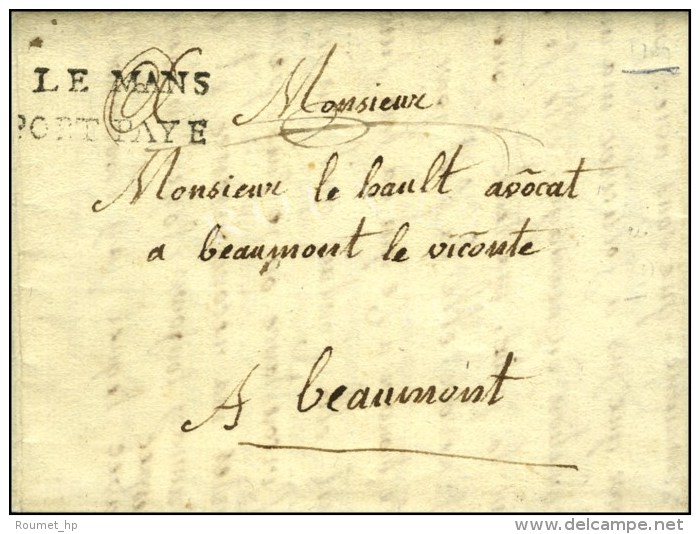 LE MANS
PORT PAYE
Monsieur
Monsieur le hault avôcat
a beaumont le vicônte
A beaumont
Roumet_hp
delcampe.net